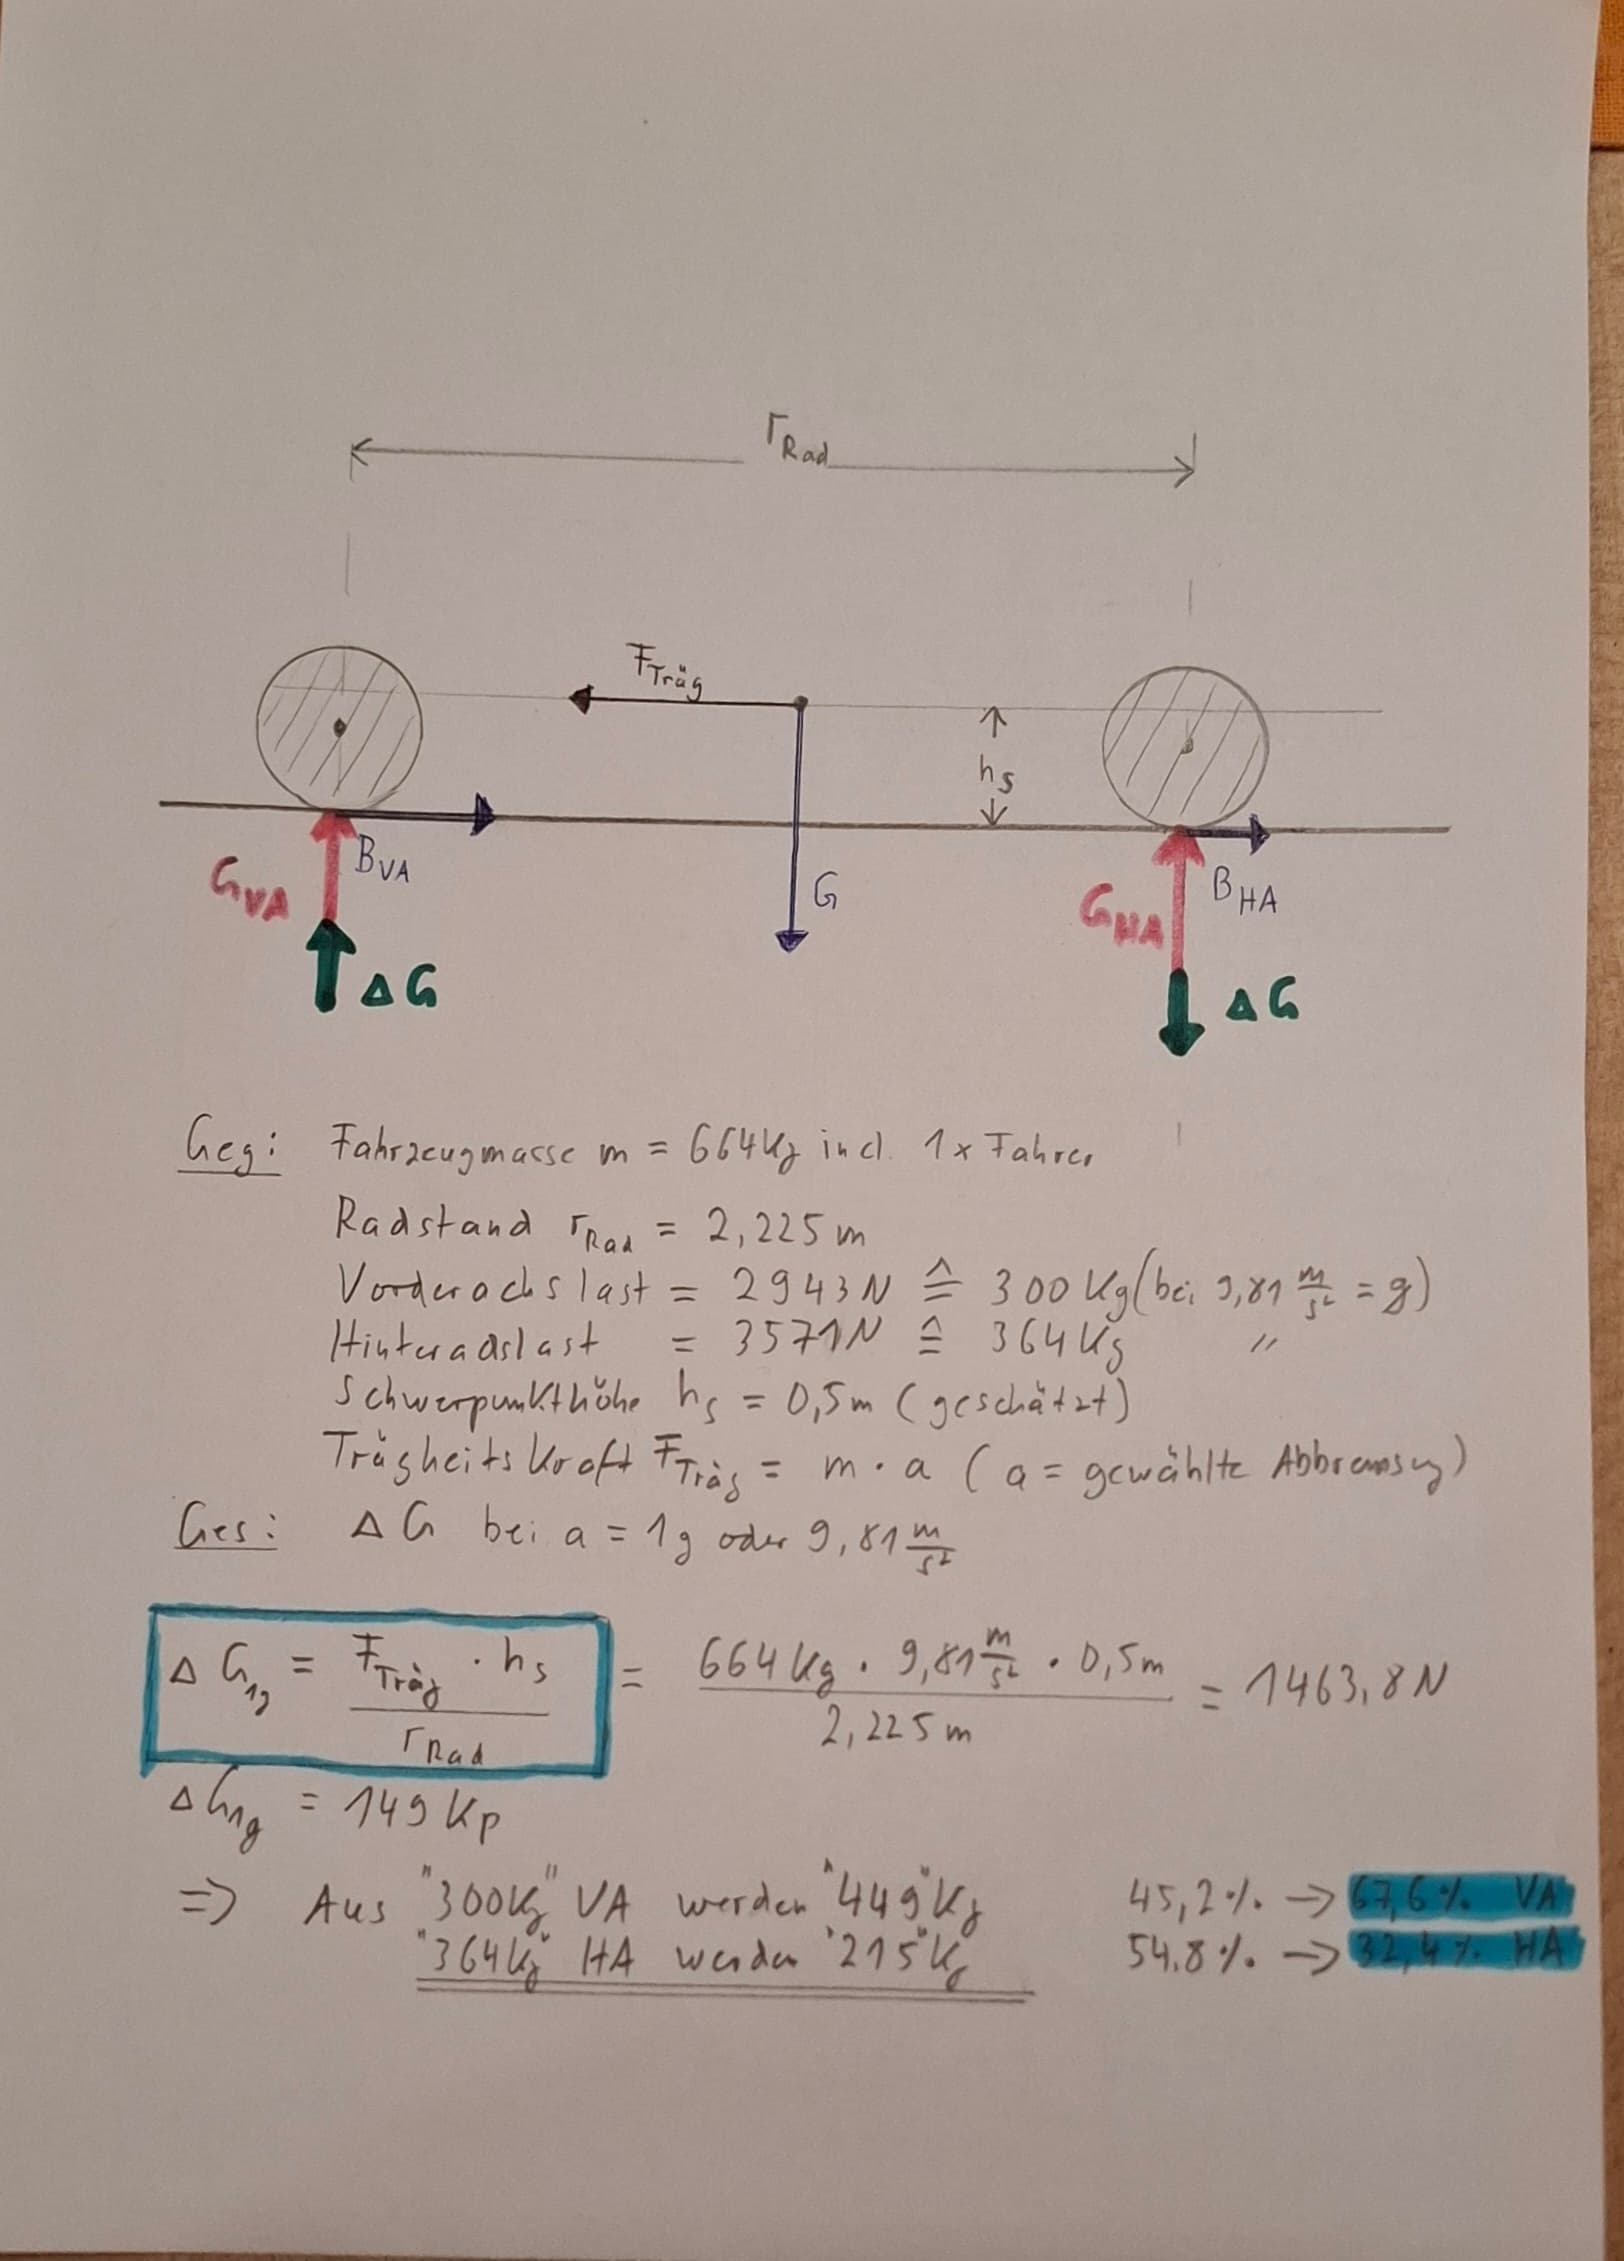 r_Rad
F_Träg
h_s
B_VA
G_VA
G
B_HA
G_HA
ΔG
ΔG
Geg: Fahrzeugmasse m = 664 Kg incl. 1 x Fahrer
Radstand r_Rad = 2,225 m
Vorderachslast = 2943 N ≙ 300 Kg (bei 9,81 m/s² = g)
Hinterachslast = 3571 N ≙ 364 Kg "
Schwerpunkthöhe h_s = 0,5 m (geschätzt)
Trägheitskraft F_Träg = m · a (a = gewählte Abbremsung)
Ges: ΔG bei a = 1g oder 9,81 m/s²
ΔG_1g = F_Träg · h_s / r_Rad = 664 Kg · 9,81 m/s² · 0,5 m / 2,225 m = 1463,8 N
ΔG_1g = 149 Kp
=> Aus "300 Kg" VA werden "449" Kg 45,2 % → 67,6 % VA
"364 Kg" HA werden "215" Kg 54,8 % → 32,4 % HA